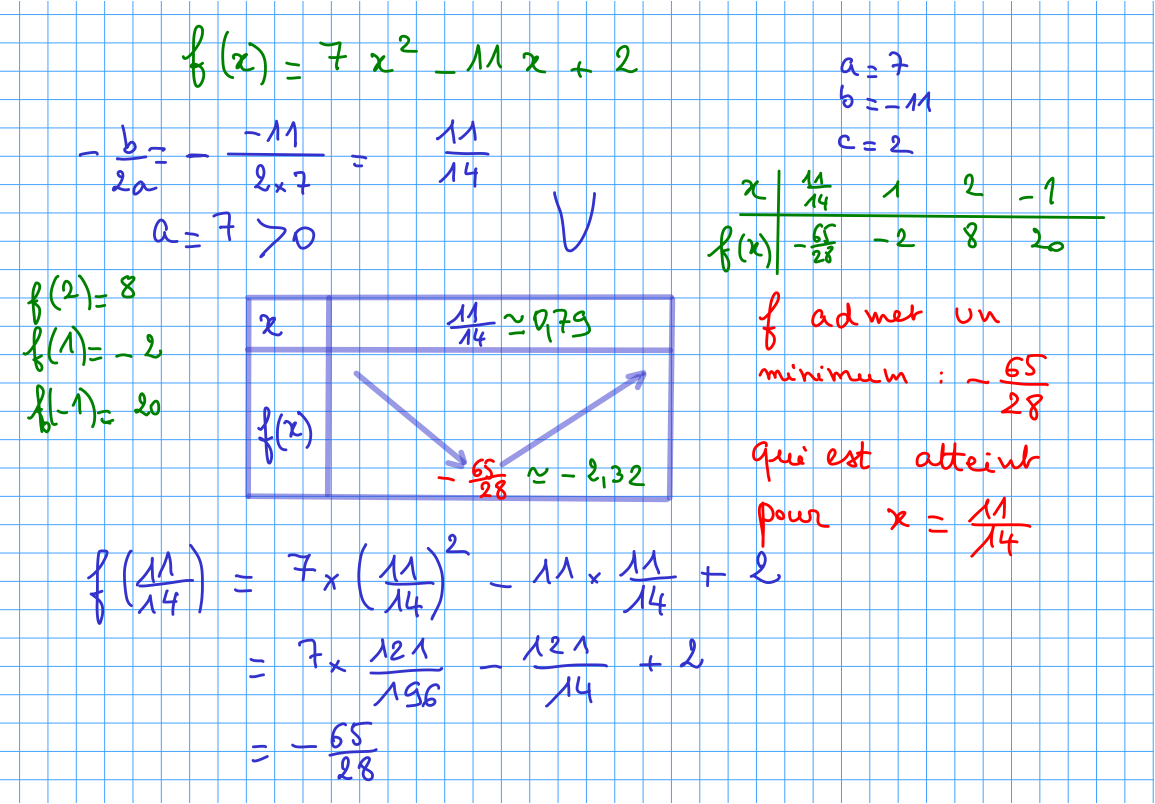 f(x) = 7x² - 11x + 2
a = 7
b = -11
c = 2
- b/2a = - -11/(2×7) = 11/14
a = 7 > 0
x | 11/14 1 2 -1
f(x) | -65/28 -2 8 20
f(2) = 8
f(1) = -2
f(-1) = 20
x 11/14 ≃ 0,79
f(x)
-65/28 ≃ -2,32
f admet un
minimum : -65/28
qui est atteint
pour x = 11/14
f(11/14) = 7 × (11/14)² - 11 × 11/14 + 2
= 7 × 121/196 - 121/14 + 2
= -65/28